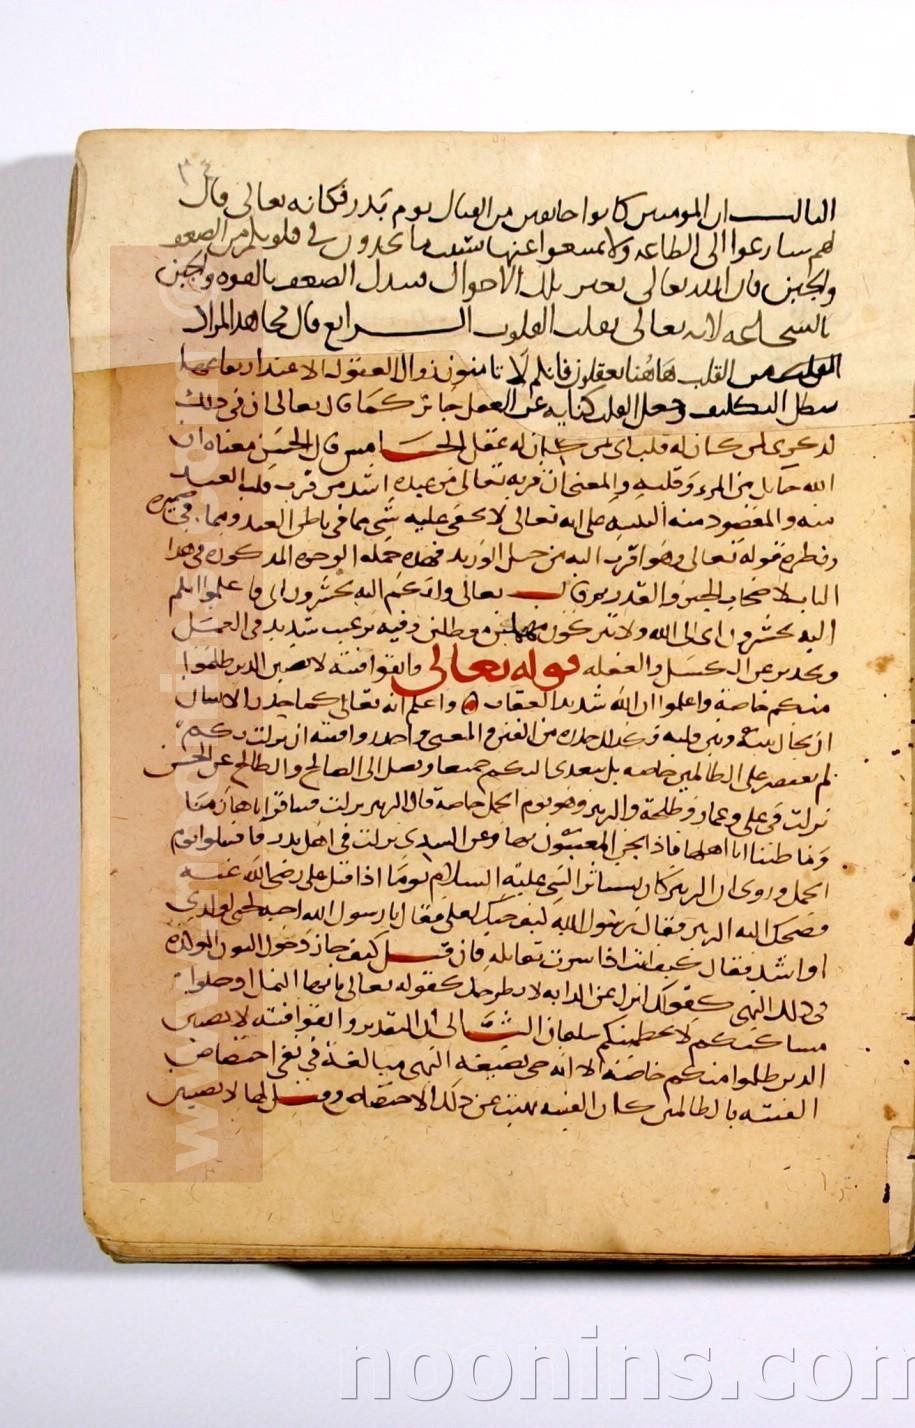 ٣٤
الثالث ان المومنين كانوا خايفين من القتال يوم بدر فكانه تعالى قال
لهم سارعوا الى الطاعه ولا تمتنعوا عنها بسبب ما تجدون في قلوبكم من الضعف
والجبن فان الله تعالى يغير تلك الاحوال فيبدل الضعف بالقوه والجبن
بالشجاعه لانه تعالى مقلب القلوب الــرابع قال مجاهد المراد
من القلب هاهنا العقل فانكم لا تامنون زوال العقول الا عند ارتفاعها
يبطل التكليف وجعل القلب كنايه عن العقل جايز كما قال تعالى ان في ذلك
لذكرى لمن كان له قلب اى لمن كان له عقل الخــامس قال الحسن معناه ان
الله حايل بين المرء وقلبه والمعنى ان قربه تعالى من عبده اشد من قرب قلب العبد
منه والمقصود منه التنبيه على انه تعالى لا يخفى عليه شي مما في باطن العبد ومما في ضميره
ونظيره قوله تعالى وهو اقرب اليه من حبل الوريد فهذه جملة الوجوه المذكورة في هذا
الباب لاصحاب الجبر والقدر ثم قال تعالى وانكم اليه تحشرون اى فاعلموا انكم
اليه تحشرون اى الى الله ولا تتركون مهملين معطلين وفيه ترغيب شديد في العمل
وتحذير عن الكسل والغفله قوله تعالى واتقوا فتنة لا تصيبن الذين ظلموا
منكم خاصة واعلموا ان الله شديد العقاب واعلم انه تعالى كما حذر الانسان
ان يحال بينه وبين قلبه فكذلك حذره من الفتن والمعنى واحذروا فتنه ان نزلت بكم
لم تقتصر على الظالمين خاصه بل تتعدى اليكم جميعا وتصل الى الصالح والطالح عن الحسن
نزلت في على وعمار وطلحة والزبير وهو يوم الجمل خاصة قال الزبير نزلت فينا وقراناها زمنا
وما ظننا انا اهلها فاذا نحن المعنيون بها وعن السدي نزلت في اهل بدر فاقتتلوا يوم
الجمل وروى ان الزبير كان يساير النبي عليه السلام يوما اذا قبل على رضي الله عنه
فضحك اليه الزبير فقال رسول الله كيف حبك لعلي فقال يا رسول الله احبه كحبى لولدى
او اشد فقال كيف انت اذا سرت تقاتله فان قــيل كيف جاز دخول النون المؤكدة
في ذلك النهى كقولك انزل عن الدابه لا تطرحك كقوله تعالى يا ايها النمل ادخلوا
مساكنكم لا يحطمنكم سليمان الثــانى ان التقدير واتقوا فتنه لا تصيبن
الذين ظلموا منكم خاصة الا انه جى بصيغه النهى مبالغة في نفى اختصاص
الفتنه بالظالمين كان الفتنه نهيت عن ذلك الاختصاص وقــيل لها لا تصيبى
www.noonins.com
noonins.com